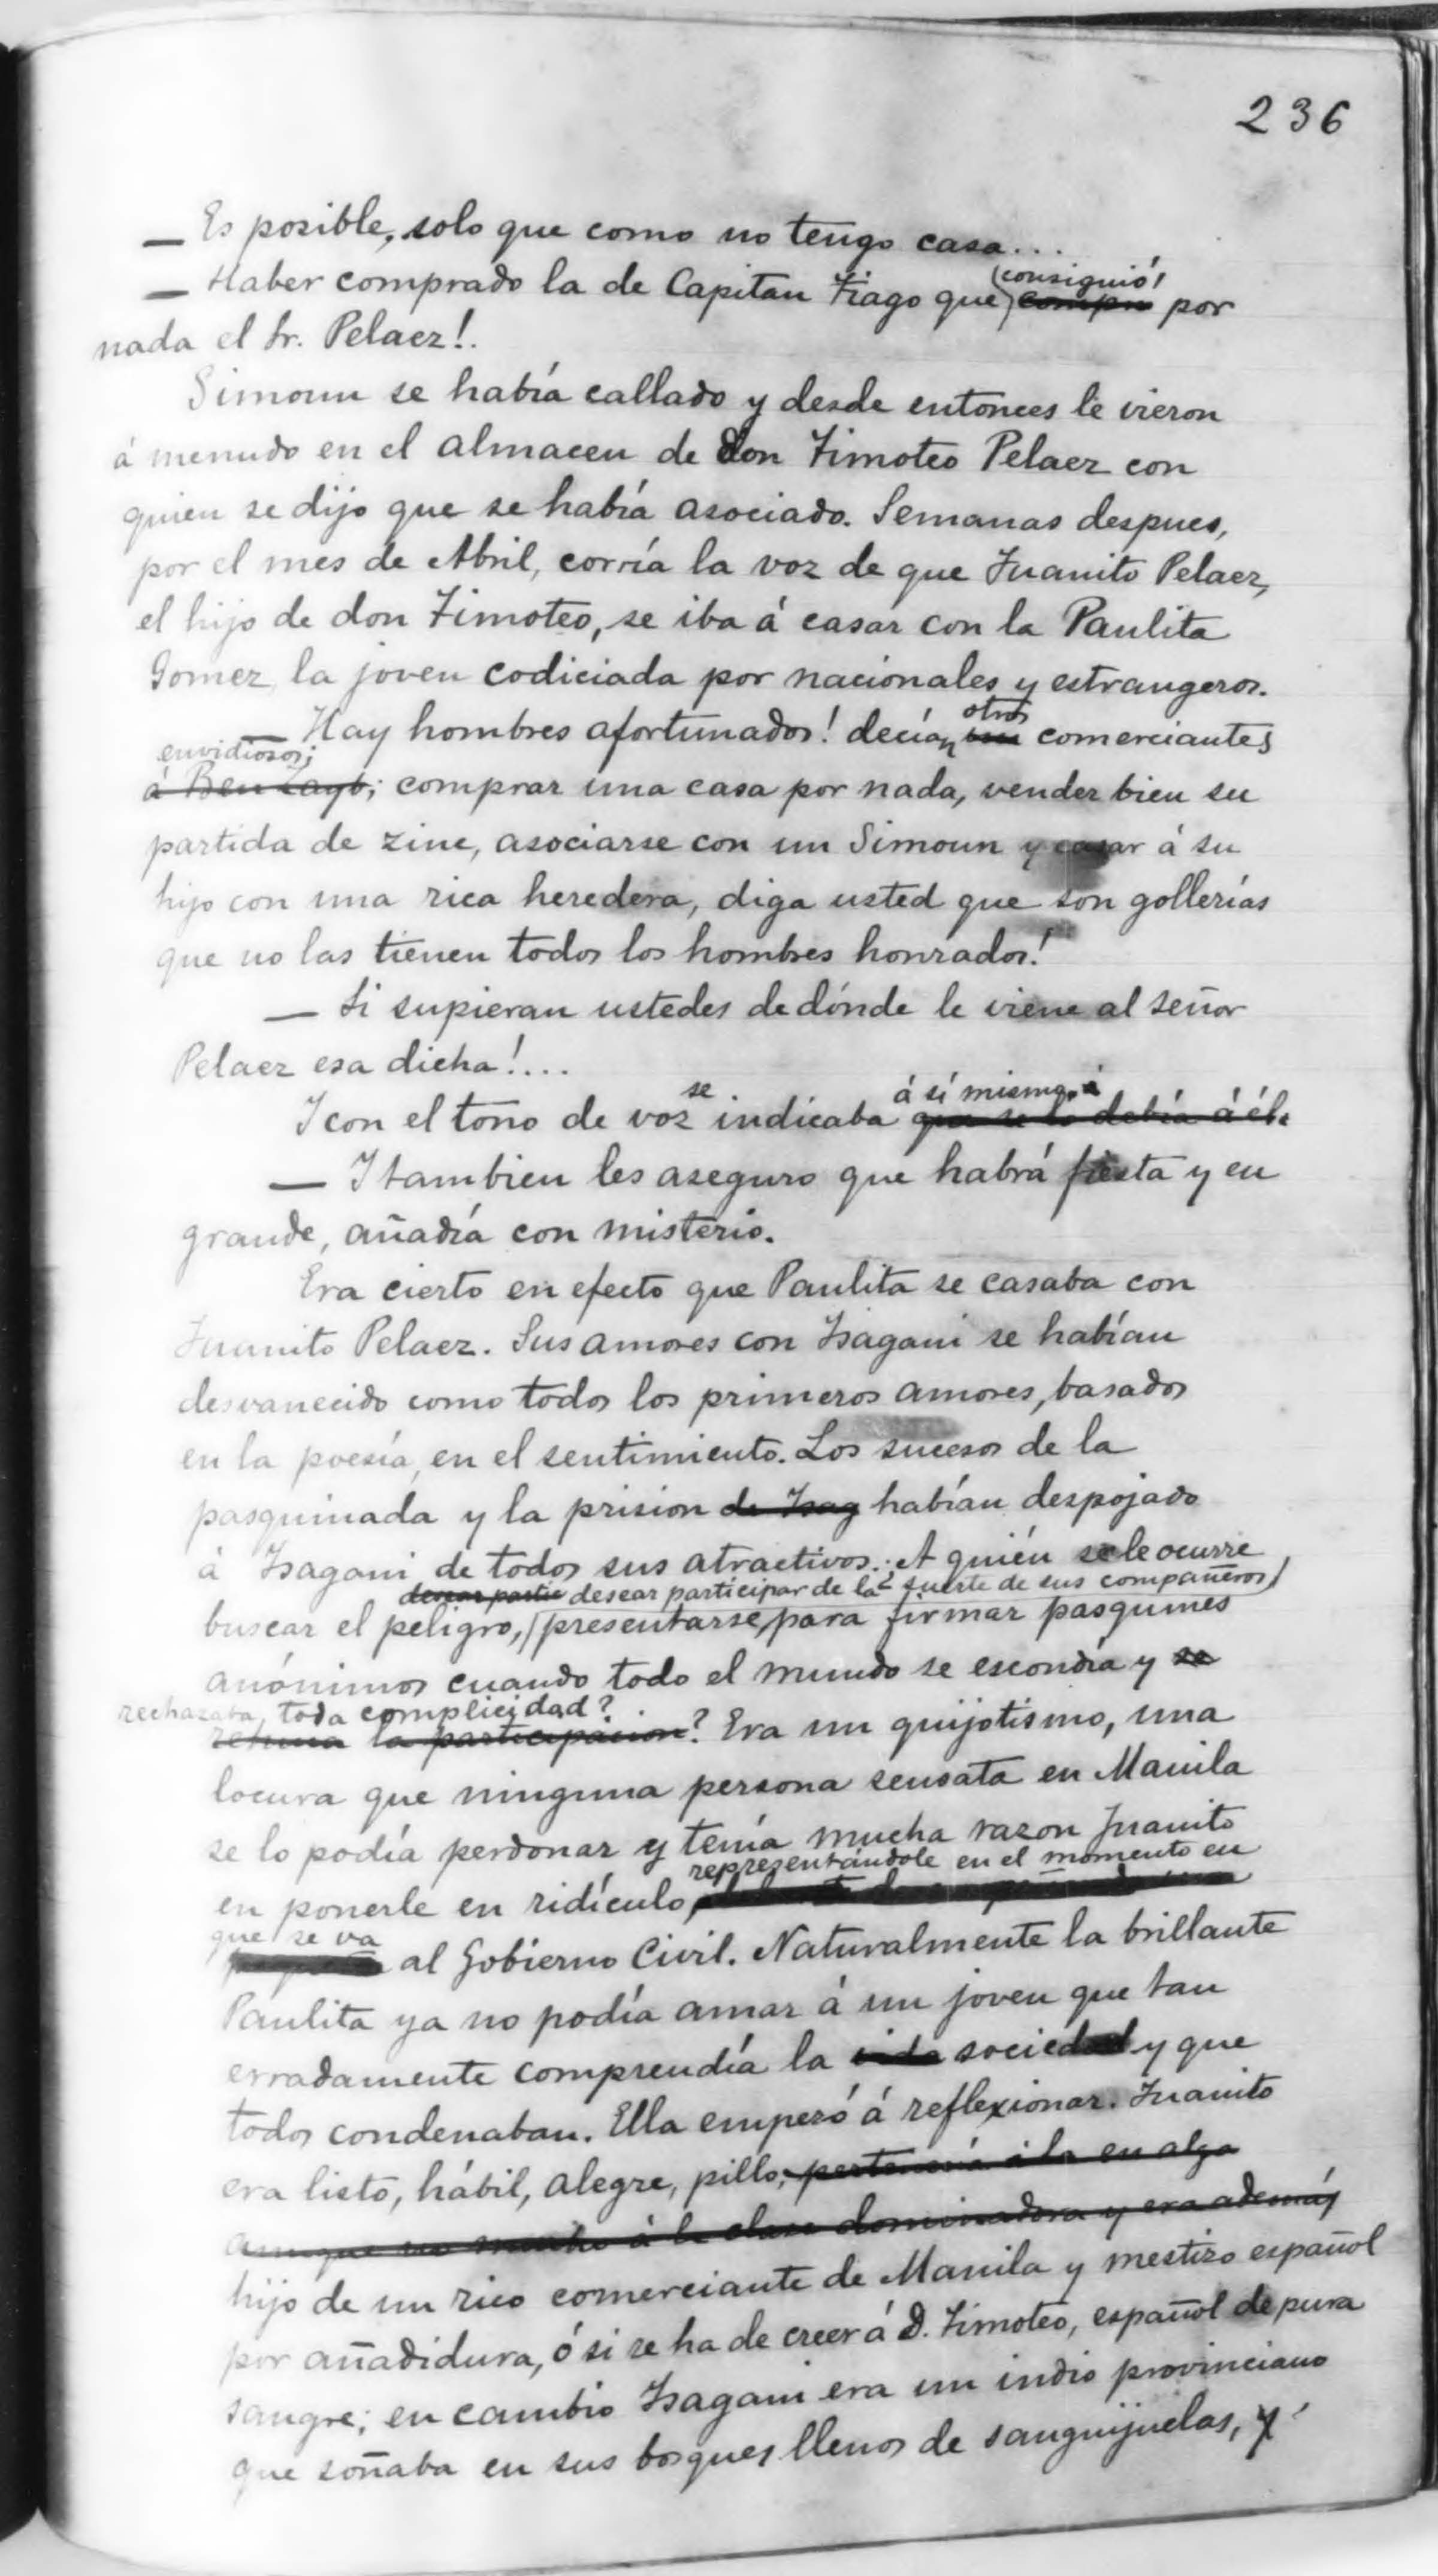 236
— Es posible, solo que como no tengo casa...
— Haber comprado la de Capitan Tiago que (consiguió) compro por
nada el Sr. Pelaez!.
Simoun se había callado y desde entonces le vieron
á menudo en el almacen de don Timoteo Pelaez con
quien se dijo que se había asociado. Semanas despues,
por el mes de Abril, corría la voz de que Juanito Pelaez,
el hijo de don Timoteo, se iba á casar con la Paulita
Gomez, la joven codiciada por nacionales y estrangeros.
otros
— Hay hombres afortunados! decían comerciantes
envidiosos;
á Ben Zayb; comprar una casa por nada, vender bien su
partida de zinc, asociarse con un Simoun y casar á su
hijo con una rica heredera, diga usted que son gollerías
que no las tienen todos los hombres honrados!
— Si supieran ustedes de dónde le viene al señor
Pelaez esa dicha!....
se á sí mismo.
Y con el tono de voz indicaba que se lo debía á él.
— Y tambien les aseguro que habrá fiesta y en
grande, añadía con misterio.
Era cierto en efecto que Paulita se casaba con
Juanito Pelaez. Sus amores con Isagani se habían
desvanecido como todos los primeros amores, basados
en la poesía, en el sentimiento. Los sucesos de la
pasquinada y la prision de Isag habían despojado
á Isagani de todos sus atractivos. ¿A quién se le ocurre
desear partic desear participar de la suerte de sus compañeros,
buscar el peligro, presentarse para firmar pasquines
anónimos cuando todo el mundo se escondía y se
rechazaba toda complicidad?
la participacion? Era un quijotismo, una
locura que ninguna persona sensata en Manila
se lo podía perdonar y tenía mucha razon Juanito
representándole en el momento en
en ponerle en ridículo,
que se va
al Gobierno Civil. Naturalmente la brillante
Paulita ya no podía amar á un joven que tan
erradamente comprendía la vida sociedad y que
todos condenaban. Ella empezó á reflexionar. Juanito
era listo, hábil, alegre, pillo, pertenecia á la en algo
aunque no mucho á la clase dominadora y era además
hijo de un rico comerciante de Manila y mestizo español
por añadidura, ó si se ha de creer á D. Timoteo, español de pura
sangre; en cambio Isagani era un indio provinciano
que soñaba en sus bosques llenos de sanguijuelas, y